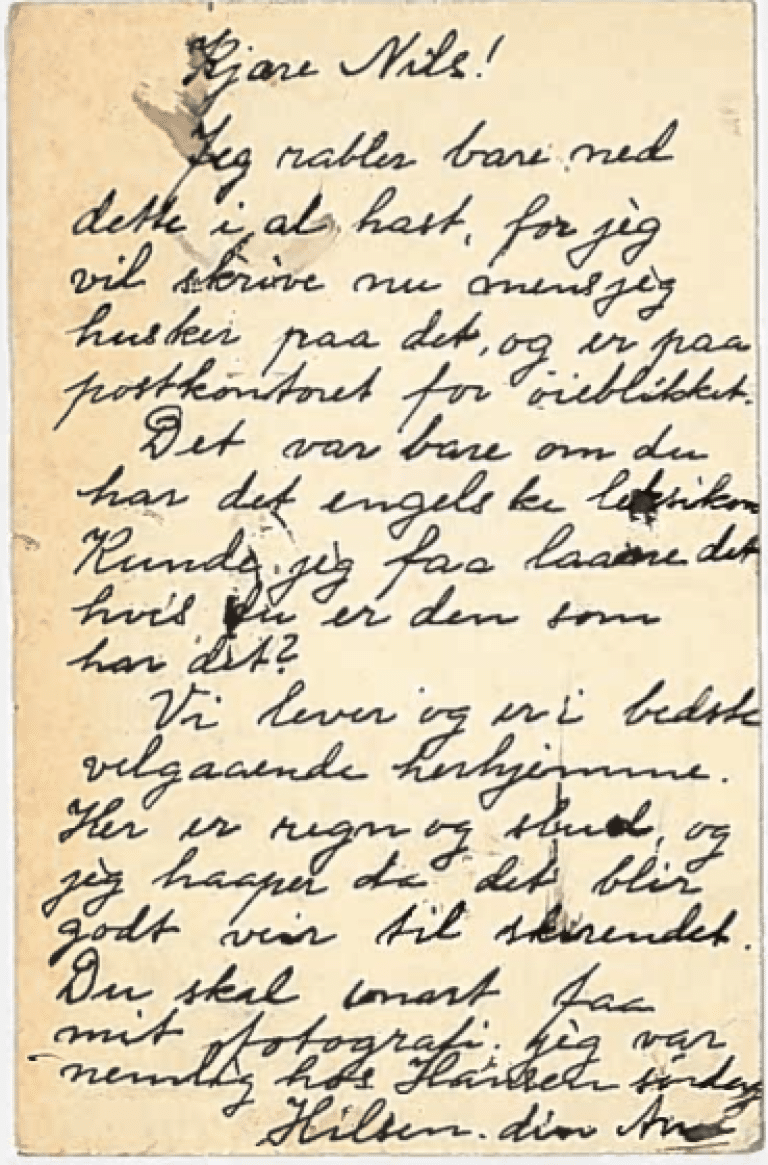 Kjære Nils!
Jeg rabler bare ned
dette i al hast, for jeg
vil skrive nu mens jeg
husker paa det, og er paa
postkontoret for øieblikket.
Det var bare om du
har det engelske leksikon
Kunde jeg faa laane det
hvis du er den som
har det?
Vi lever og er i bedste
velgaaende herhjemme.
Her er regn og slud, og
jeg haaper da det blir
godt veir til skirendet.
Du skal snart faa
mit fotografi. jeg var
nemlig hos Hansen
Hilsen. din